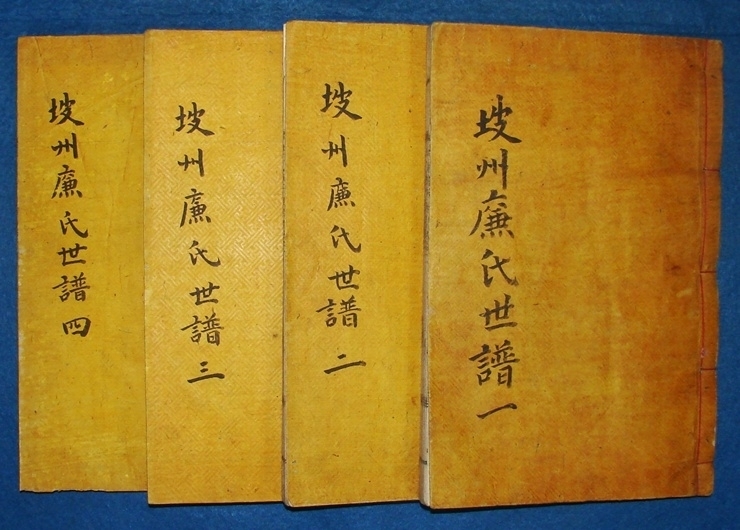 坡州廉氏世譜一
坡州廉氏世譜二
坡州廉氏世譜三
坡州廉氏世譜四